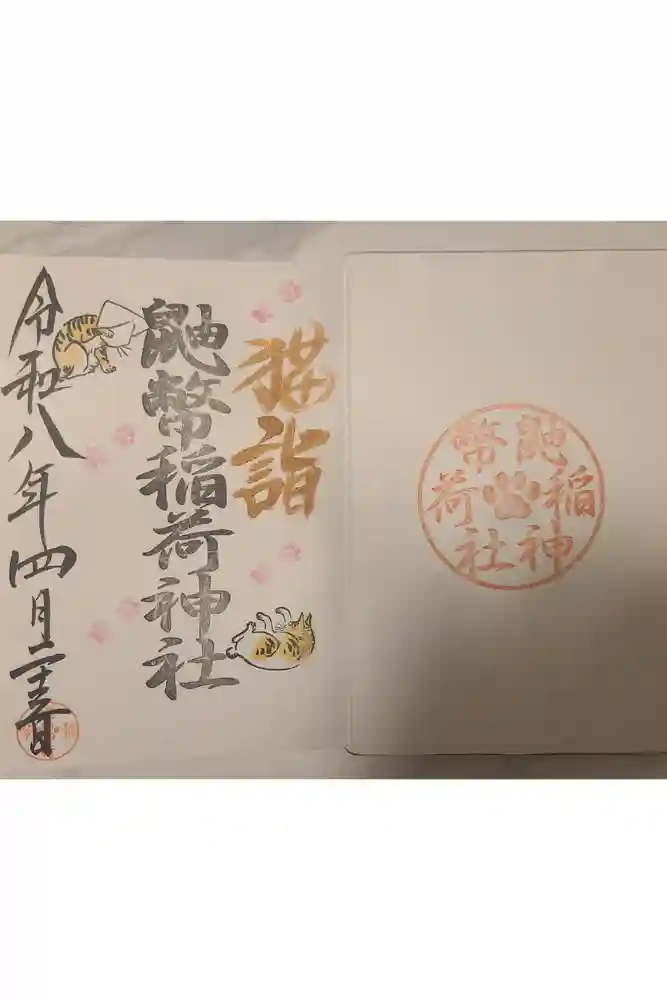 鼬幣
稲荷
神社
猫詣
鼬幣稲荷神社
令和八年四月二十五日